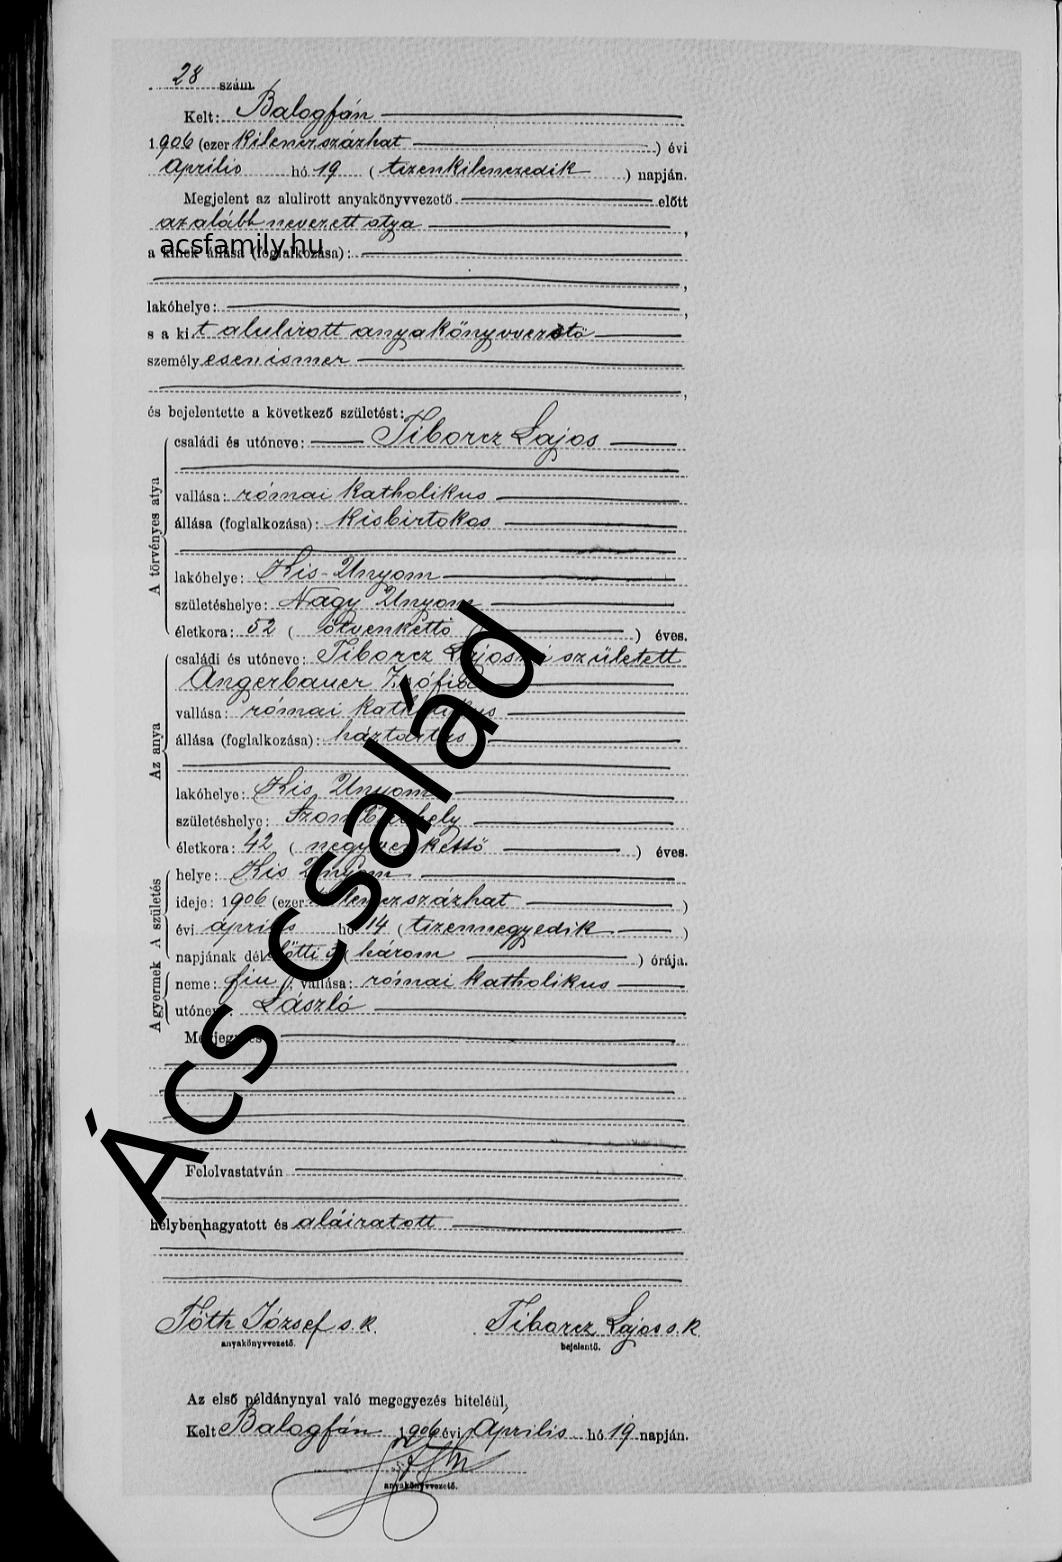 28 szám.
Kelt: Balogfán
1906 (ezer kilenczszázhat ) évi
Április hó 19 ( tizenkilenczedik ) napján.
Megjelent az alulirott anyakönyvvezető előtt
az alább nevezett atya ,
acsfamily.hu
a kinek állása (foglalkozása):
,
lakóhelye: ,
s a kit alulirott anyakönyvvezető
személyesen ismer
,
és bejelentette a következő születést:
A törvényes atya
családi és utóneve: Tiborcz Lajos
vallása: római katholikus
állása (foglalkozása): kisbirtokos
lakóhelye: Kis-Unyom
születéshelye: Nagy Unyom
életkora: 52 ( ötvenkettő ) éves.
Az anya
családi és utóneve: Tiborcz Lajosné született
Angerbauer Zsófia
vallása: római katholikus
állása (foglalkozása): háztartás
lakóhelye: Kis Unyom
születéshelye: Szombathely
életkora: 42 ( negyvenkettő ) éves.
A születés
helye: Kis Unyom
ideje: 1906 (ezer kilenczszázhat )
évi április hó 14 ( tizennegyedik )
napjának délelőtti ( három ) órája.
A gyermek
neme: fiu ; vallása: római katholikus
utóneve: László
Megjegyzés:
Felolvastatván
helybenhagyatott és aláiratott
Tóth József s. k. Tiborcz Lajos s. k.
anyakönyvvezető. bejelentő.
Az első példánynyal való megegyezés hiteléül,
Kelt Balogfán 1906 évi Április hó 19 napján.
anyakönyvvezető.
Ács család